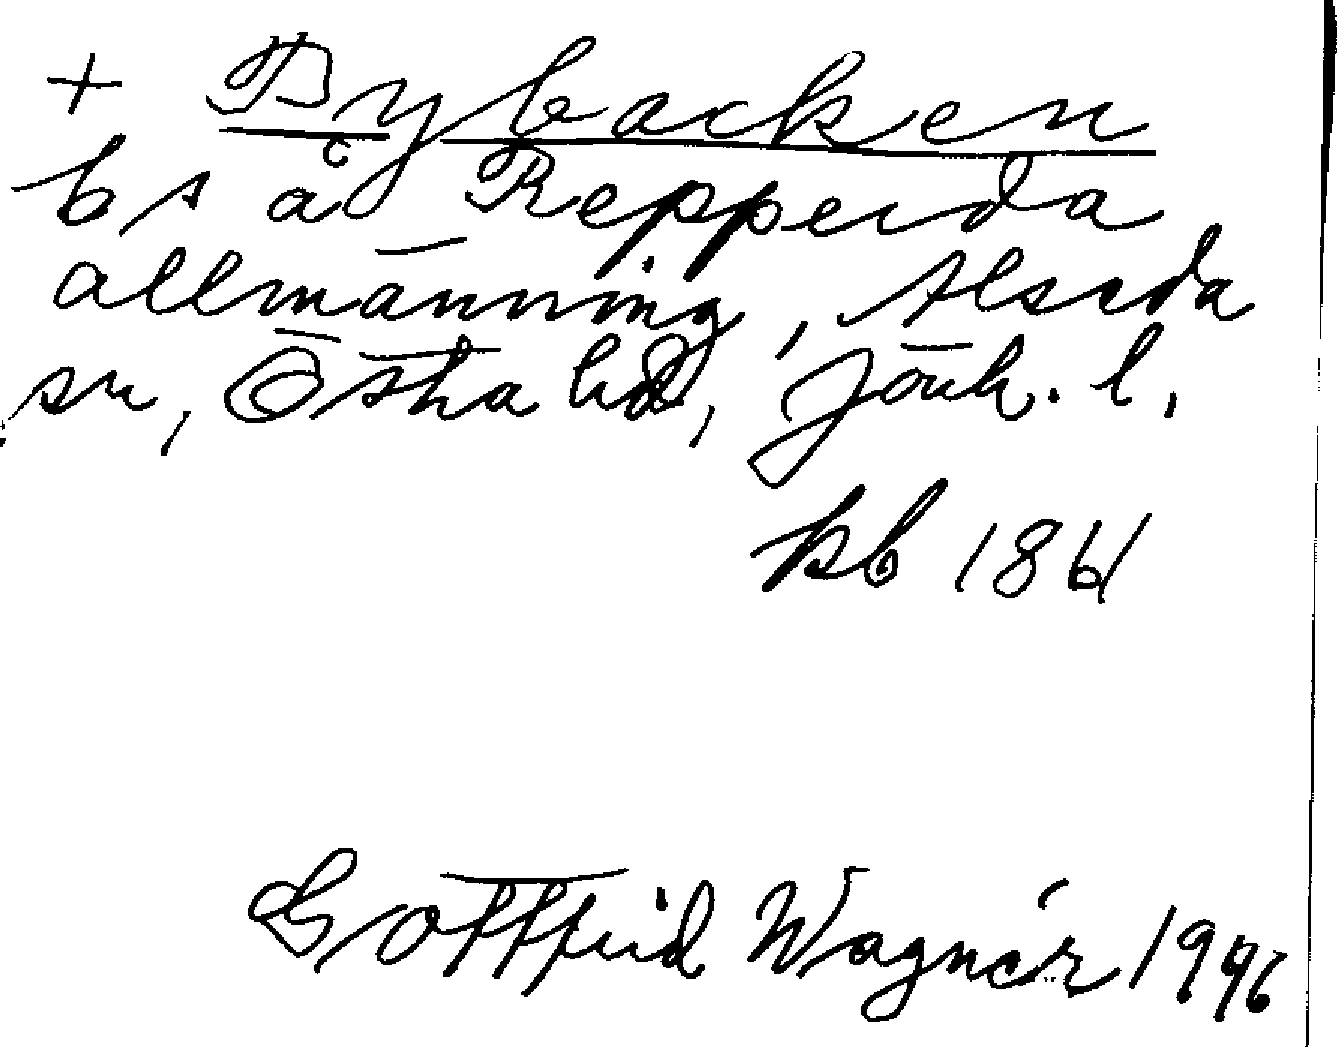 + Pybacken
bs å Repperda
allmänning, Alseda
sn, Östra hd, Jönk. l.
kb 1861
Gottfrid Wagnér 1996